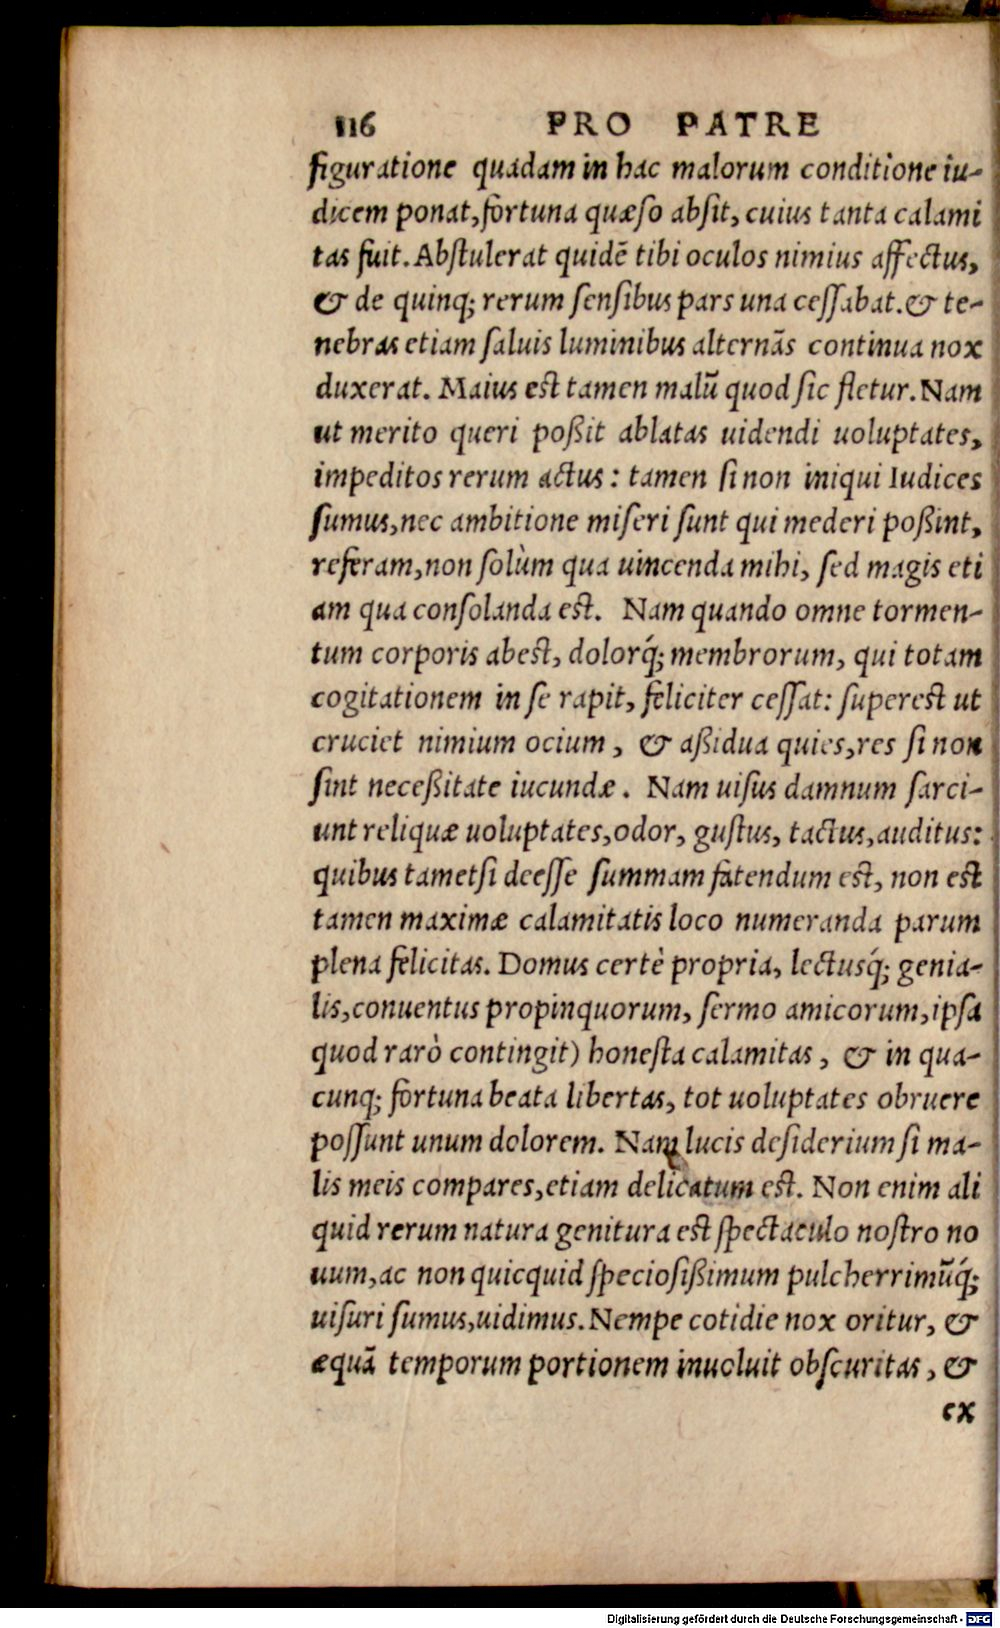 116 PRO PATRE
figuratione quadam in hac malorum conditione iu-
dicem ponat, fortuna quæso absit, cuius tanta calami
tas fuit. Abstulerat quidē tibi oculos nimius affectus,
& de quinq; rerum sensibus pars una cessabat. & te-
nebras etiam saluis luminibus alternãs continua nox
duxerat. Maius est tamen malũ quod sic fletur. Nam
ut merito queri poßit ablatas uidendi uoluptates,
impeditos rerum actus: tamen si non iniqui Iudices
sumus, nec ambitione miseri sunt qui mederi poßint,
referam, non solùm qua uincenda mihi, sed magis eti
am qua consolanda est. Nam quando omne tormen-
tum corporis abest, dolorq́; membrorum, qui totam
cogitationem in se rapit, feliciter cessat: superest ut
cruciet nimium ocium, & aßidua quies, res si non
sint neceßitate iucundæ. Nam uisus damnum sarci-
unt reliquæ uoluptates, odor, gustus, tactus, auditus:
quibus tametsi deesse summam fatendum est, non est
tamen maximæ calamitatis loco numeranda parum
plena felicitas. Domus certè propria, lectusq́; genia-
lis, conuentus propinquorum, sermo amicorum, ipsa
quod rarò contingit) honesta calamitas, & in qua-
cunq; fortuna beata libertas, tot uoluptates obruere
possunt unum dolorem. Nam lucis desiderium si ma-
lis meis compares, etiam delicatum est. Non enim ali
quid rerum natura genitura est spectaculo nostro no
uum, ac non quicquid speciosißimum pulcherrimũq́;
uisuri sumus, uidimus. Nempe cotidie nox oritur, &
æquã temporum portionem inuoluit obscuritas, &
ex
Digitalisierung gefördert durch die Deutsche Forschungsgemeinschaft - DFG